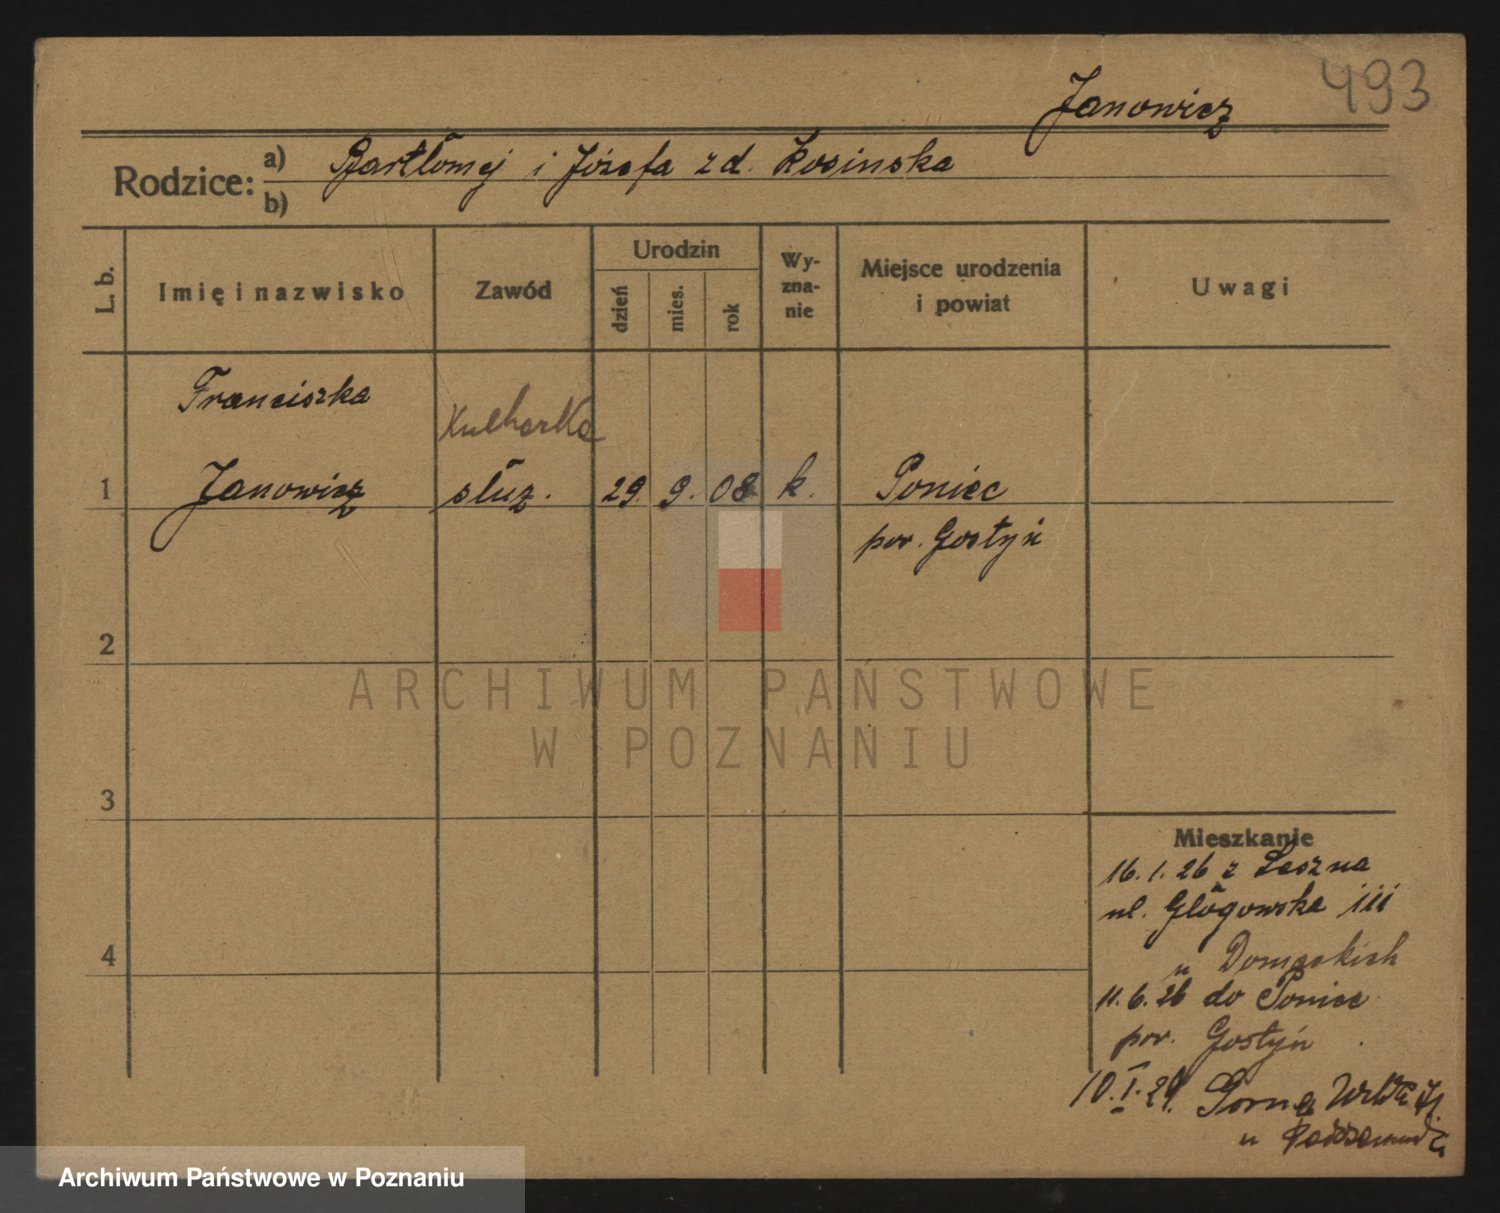 493
Janowicz
Rodzice: a) Bartłomej i Józefa z d. Kosinska
b)
L. b. Imię i nazwisko Zawód Urodzin dzień mies. rok Wy-zna-nie Miejsce urodzenia i powiat Uwagi
Franciszka
Kucharka
1 Janowicz służ. 29. 9. 08 k. Poniec
pow. Gostyń
2
ARCHIWUM PAŃSTWOWE
W POZNANIU
3
Mieszkanie
16. 1. 26 z Leszna
ul. Głogowska
4
u
11. 6. 26 do Poniec
pow. Gostyń
10. I. 29. Górna Wilda
u
Archiwum Państwowe w Poznaniu